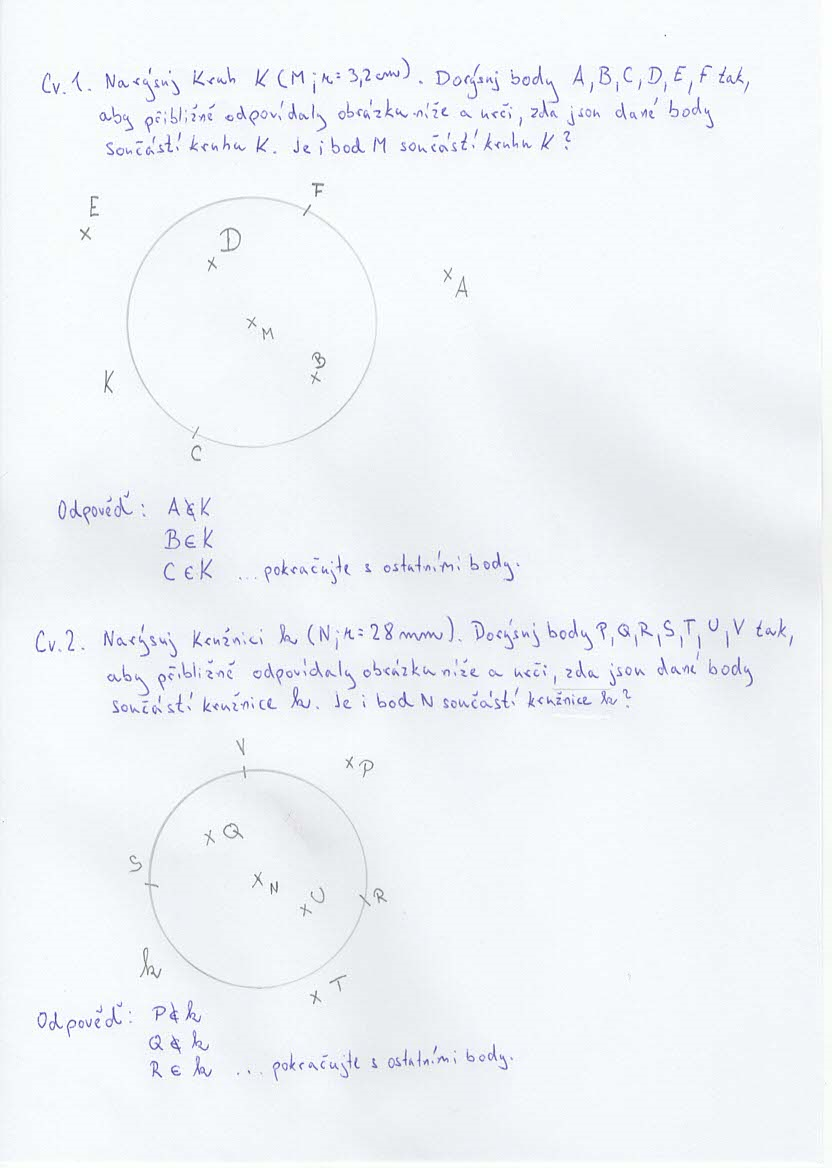 Cv.1. Narýsuj Kruh K (M; r = 3,2 cm). Dorýsuj body A, B, C, D, E, F tak,
aby přibližně odpovídaly obrázku níže a urči, zda jsou dané body
součástí kruhu K. Je i bod M součástí kruhu K?
F
E
D
A
M
B
K
C
Odpověď: A ∉ K
B ∈ K
C ∈ K ... pokračujte s ostatními body.
Cv.2. Narýsuj Kružnici k (N; r = 28 mm). Dorýsuj body P, Q, R, S, T, U, V tak,
aby přibližně odpovídaly obrázku níže a urči, zda jsou dané body
součástí kružnice k. Je i bod N součástí kružnice k?
V
P
Q
S
N
U
R
k
T
Odpověď: P ∉ k
Q ∉ k
R ∈ k ... pokračujte s ostatními body.